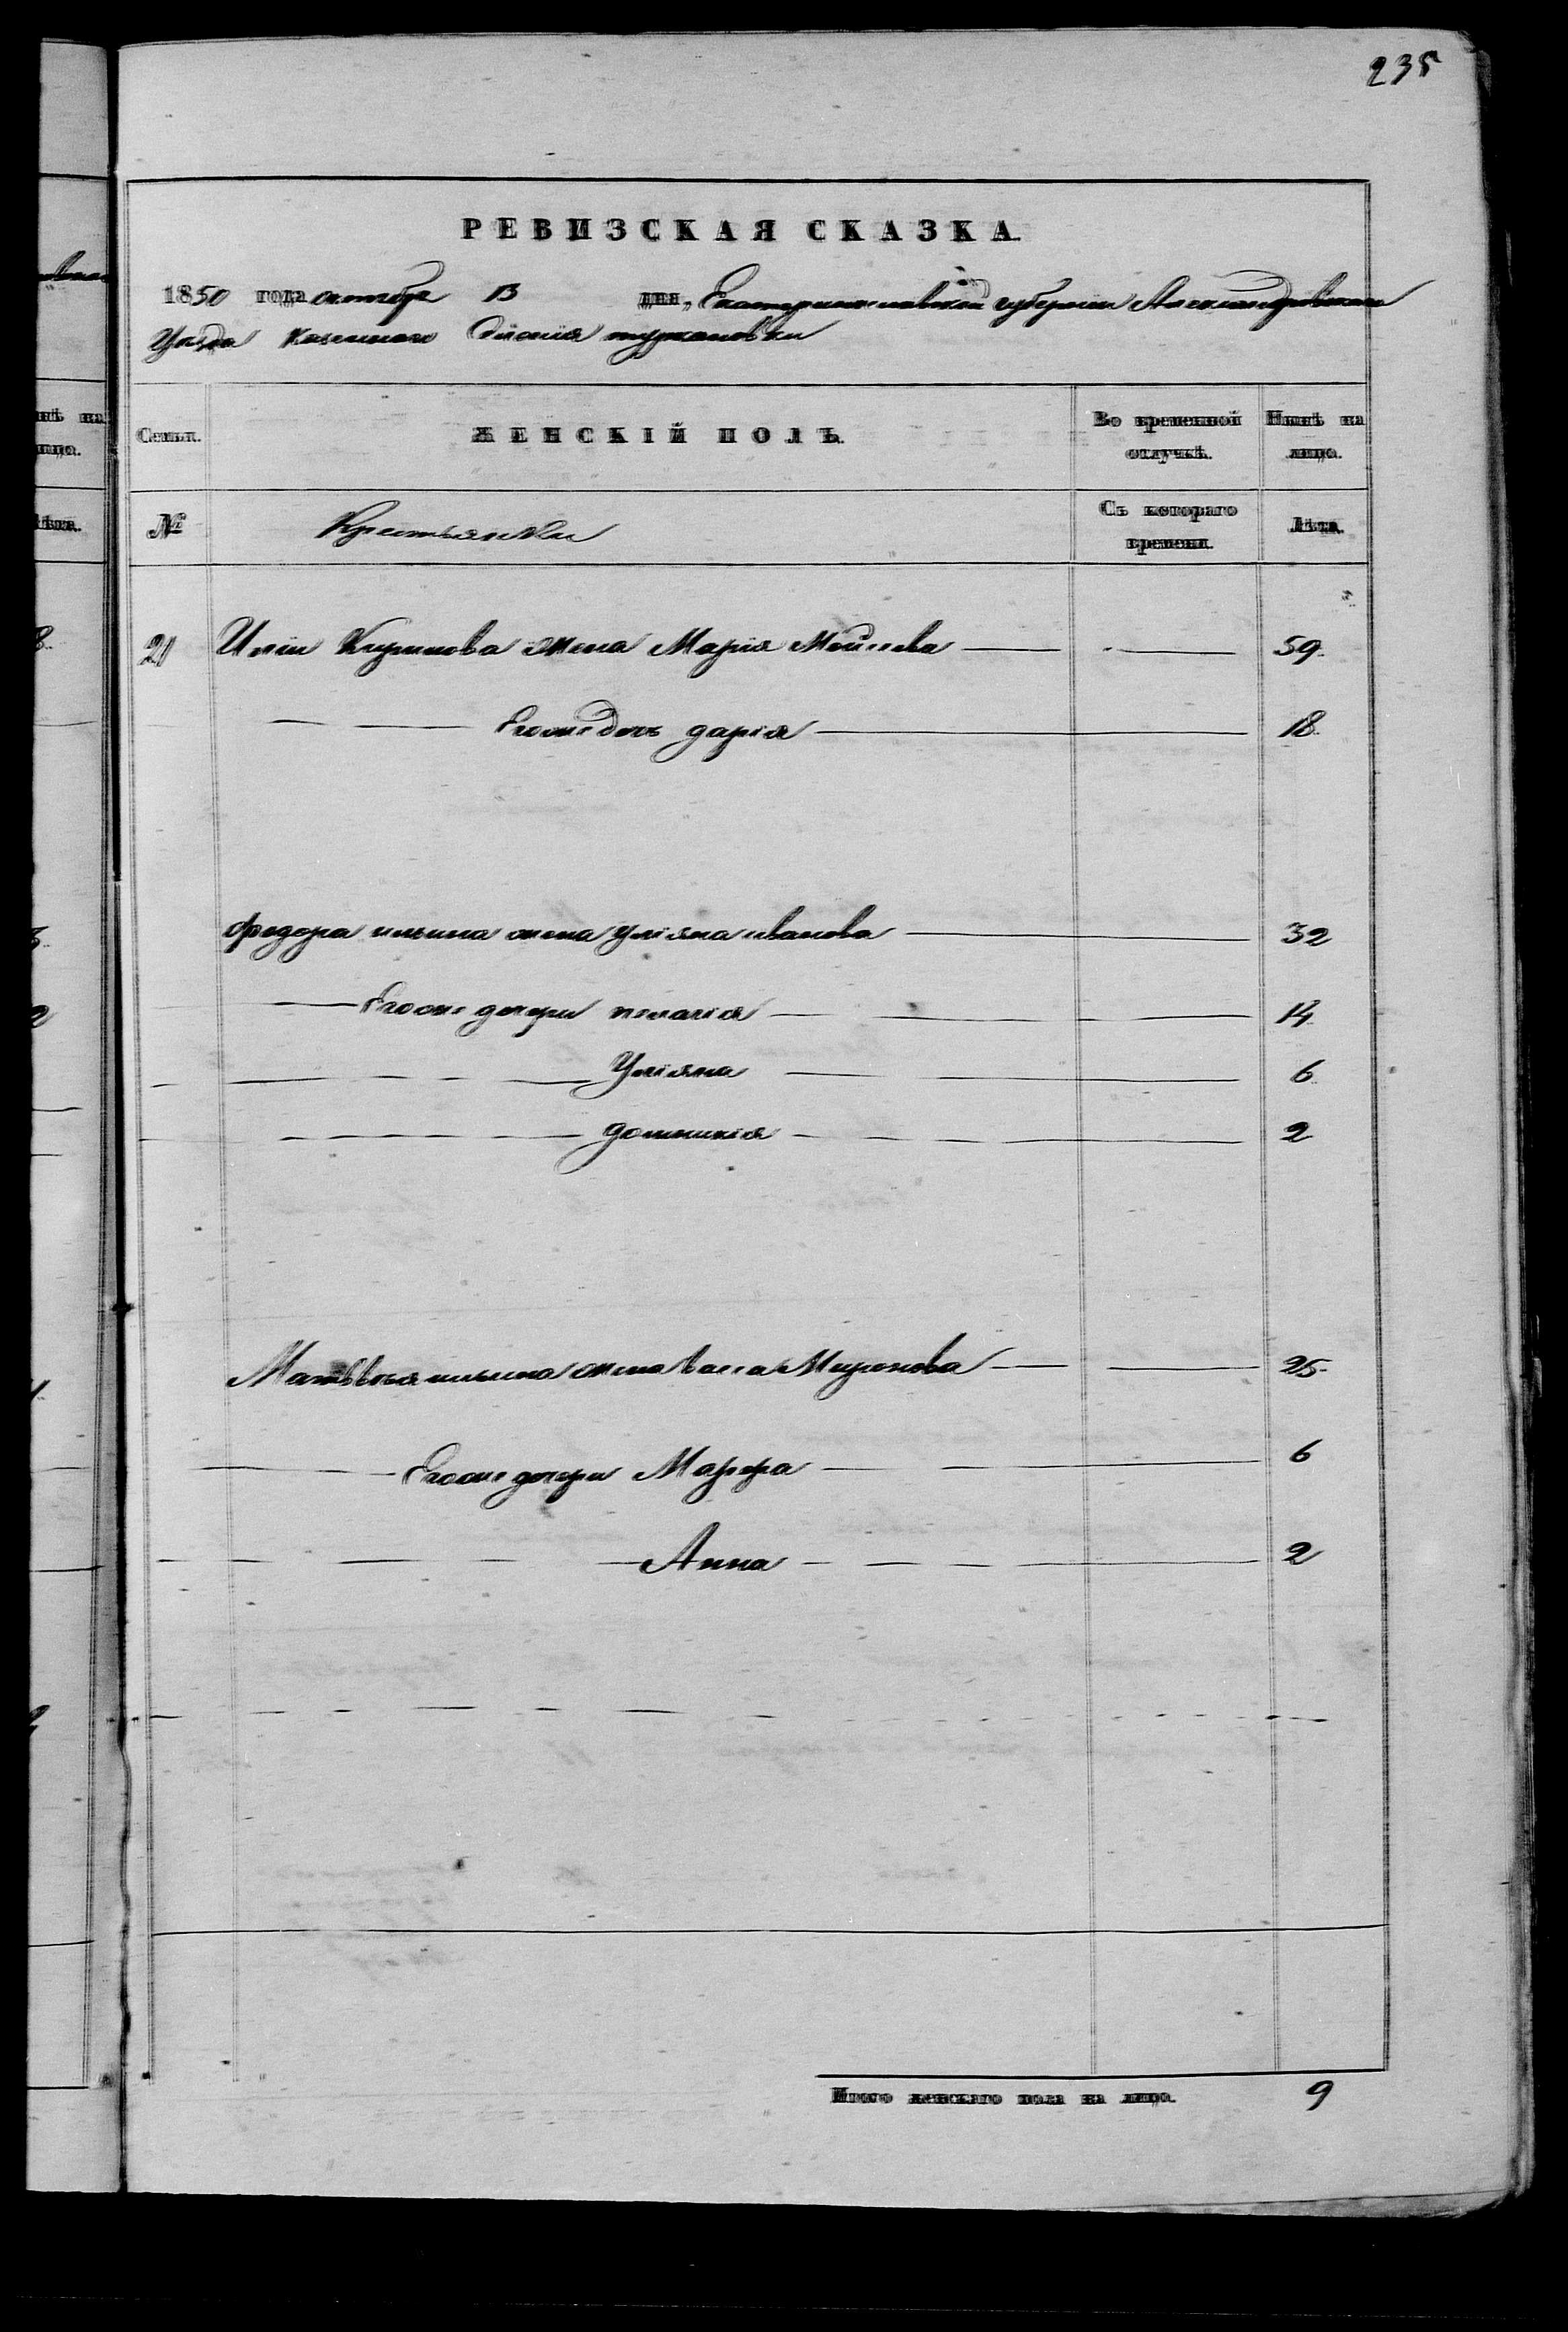 235
РЕВИЗСКАЯ СКАЗКА.
1850 года октября 13 дня, Екатеринославской губернии Александровскаго
Уезда Казенного Селенія туркановки
Семьи. ЖЕНСКІЙ ПОЛЪ. Во временной отлучкѣ. Нынѣ на лицо.
№ Крестьянки Съ котораго времени. Лѣта.
21 Иліи Кирилова жена Марія Мойсеева 59.
Егоже дочь дарія 18.
федора ильина жена уліяна иванова 32
Егоже дочери пелагія 14.
Уліяна 6.
домникія 2
Матвѣя ильина жена васса Миронова 25.
Егоже дочери Марфа 6
Анна 2
Итого женскаго пола на лицо. 9